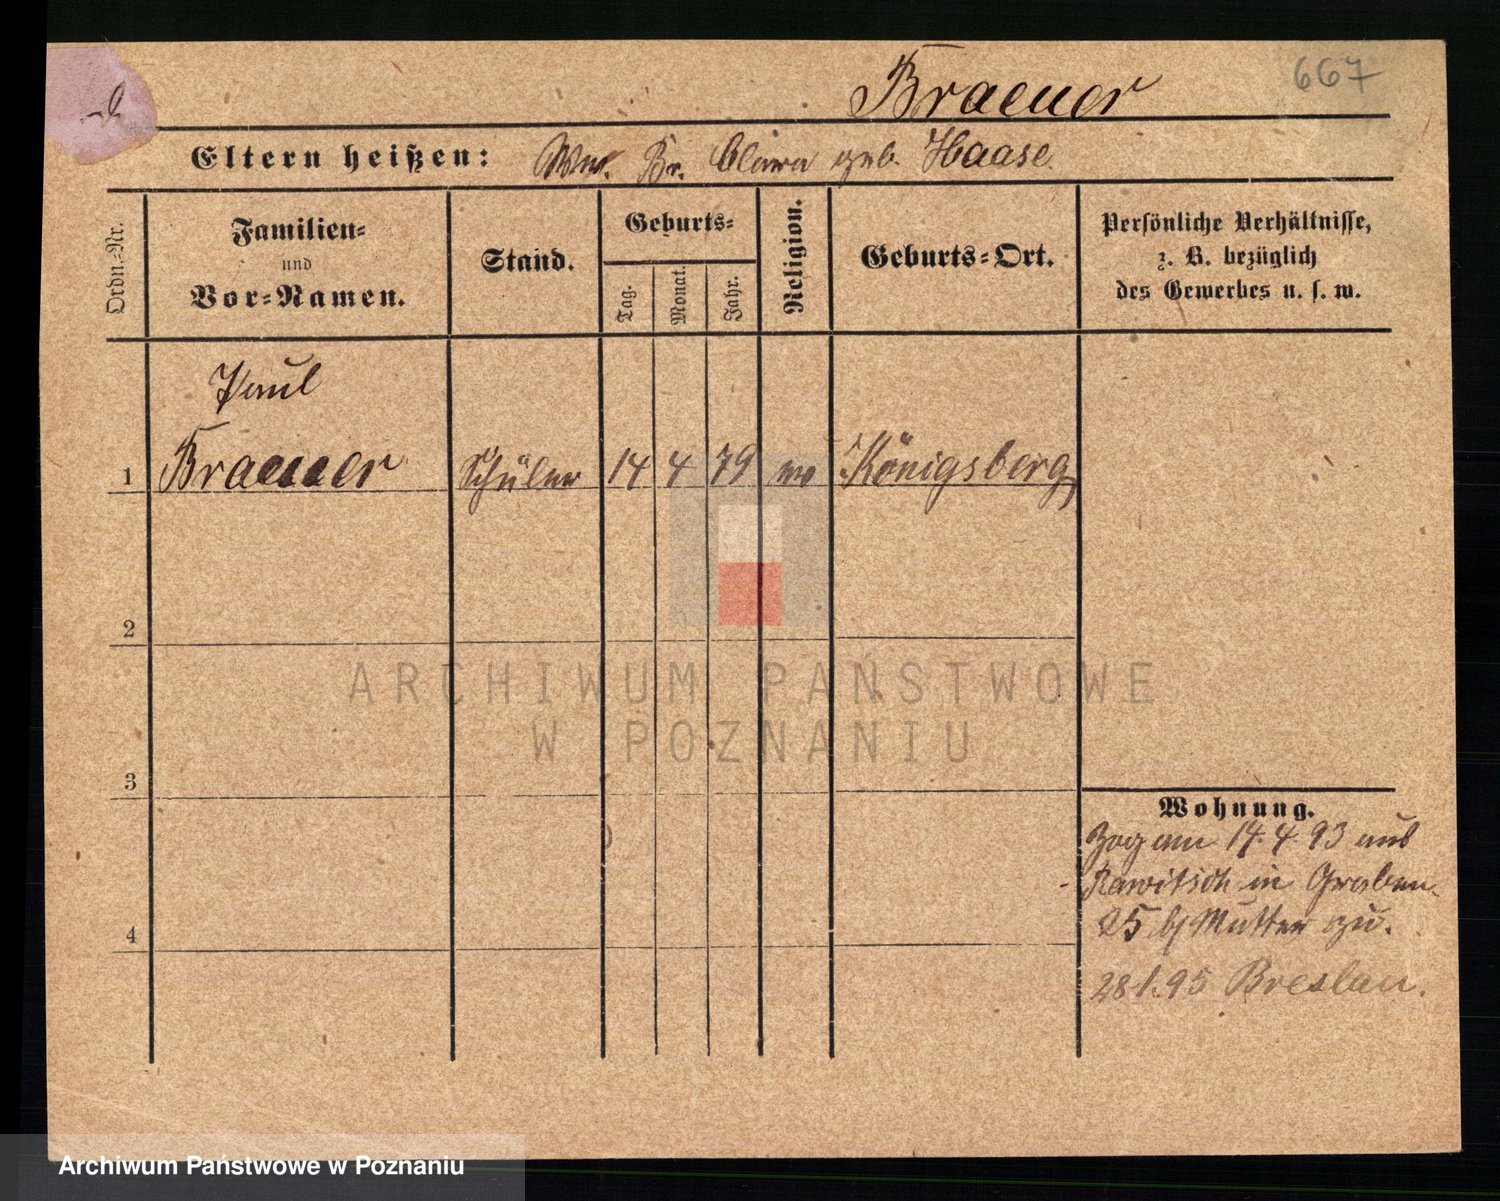 667
Braeuer
Eltern heißen: Ww. Br. Clara geb. Haase
Ordn.-Nr.
Familien-
und
Vor-Namen.
Stand.
Geburts-
Tag.
Monat.
Jahr.
Religion.
Geburts-Ort.
Persönliche Verhältnisse,
z. B. bezüglich
des Gewerbes u. s. w.
Paul
1 Braeuer Schüler 14 4 79 Königsberg
2
ARCHIWUM PAŃSTWOWE
W POZNANIU
3
Wohnung.
Zog am 14.4.93 aus
Rawitsch in Graben-
25 b/ Mutter zu.
4
28.1.95 Breslau.
Archiwum Państwowe w Poznaniu